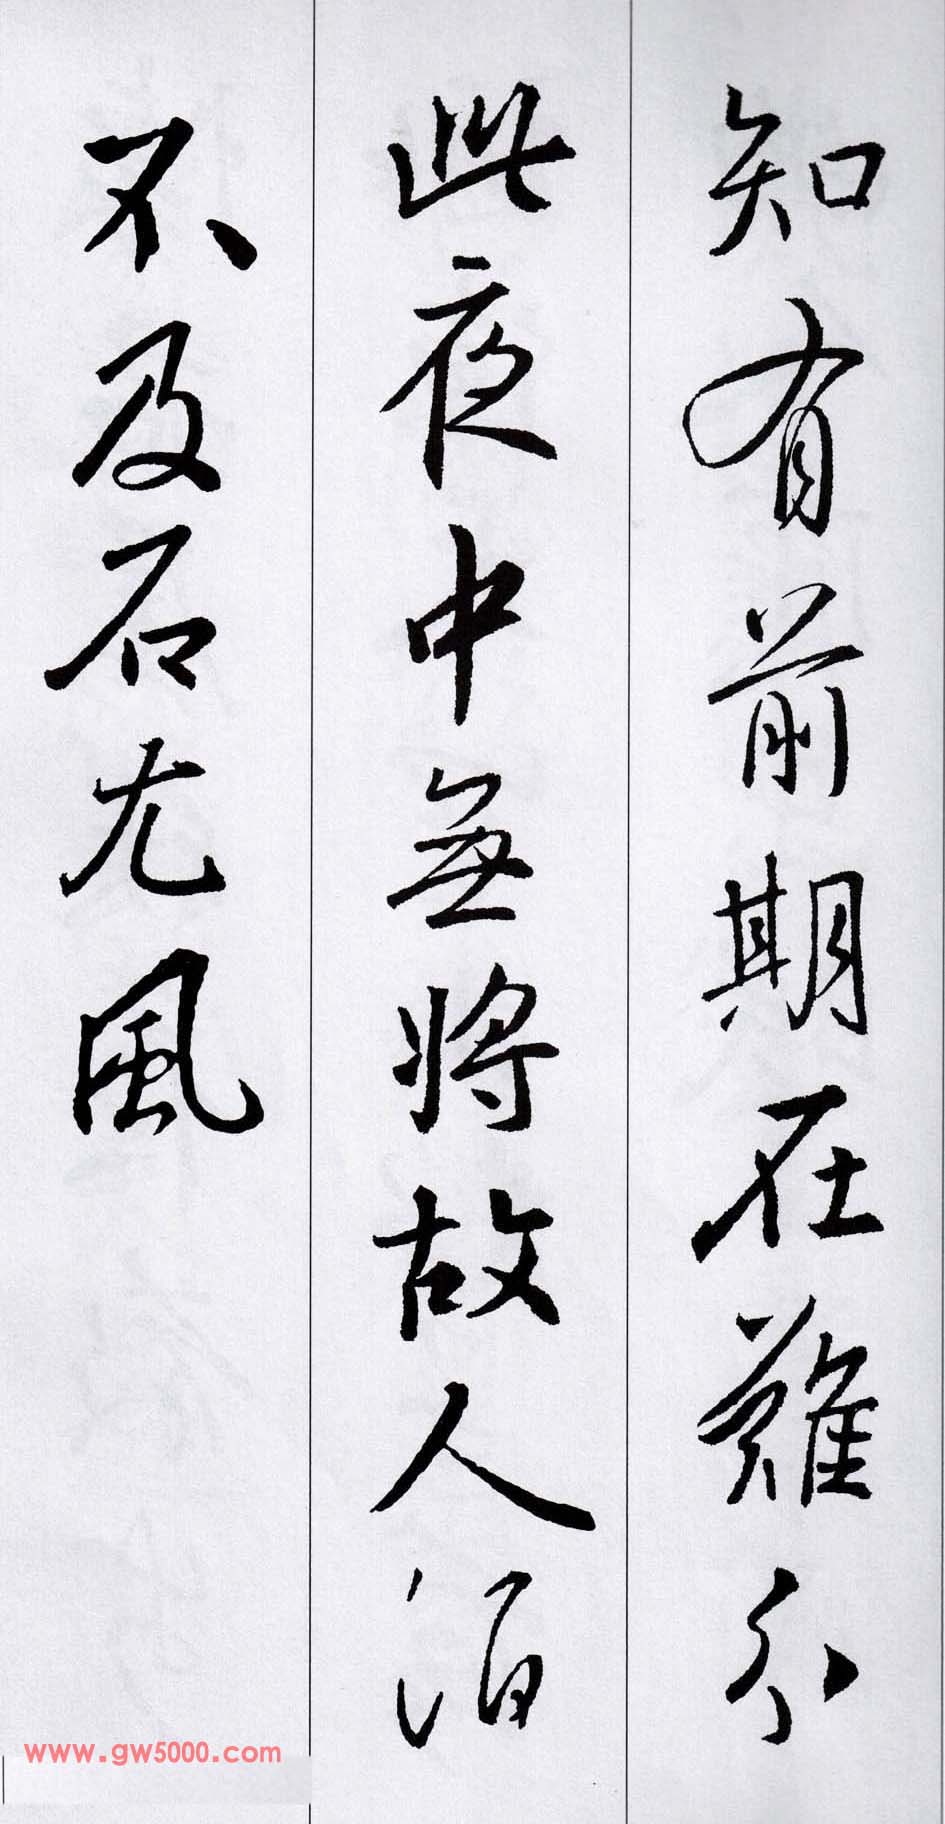 知有前期在難分
此夜中無將故人酒
不及石尤風
www.gw5000.com